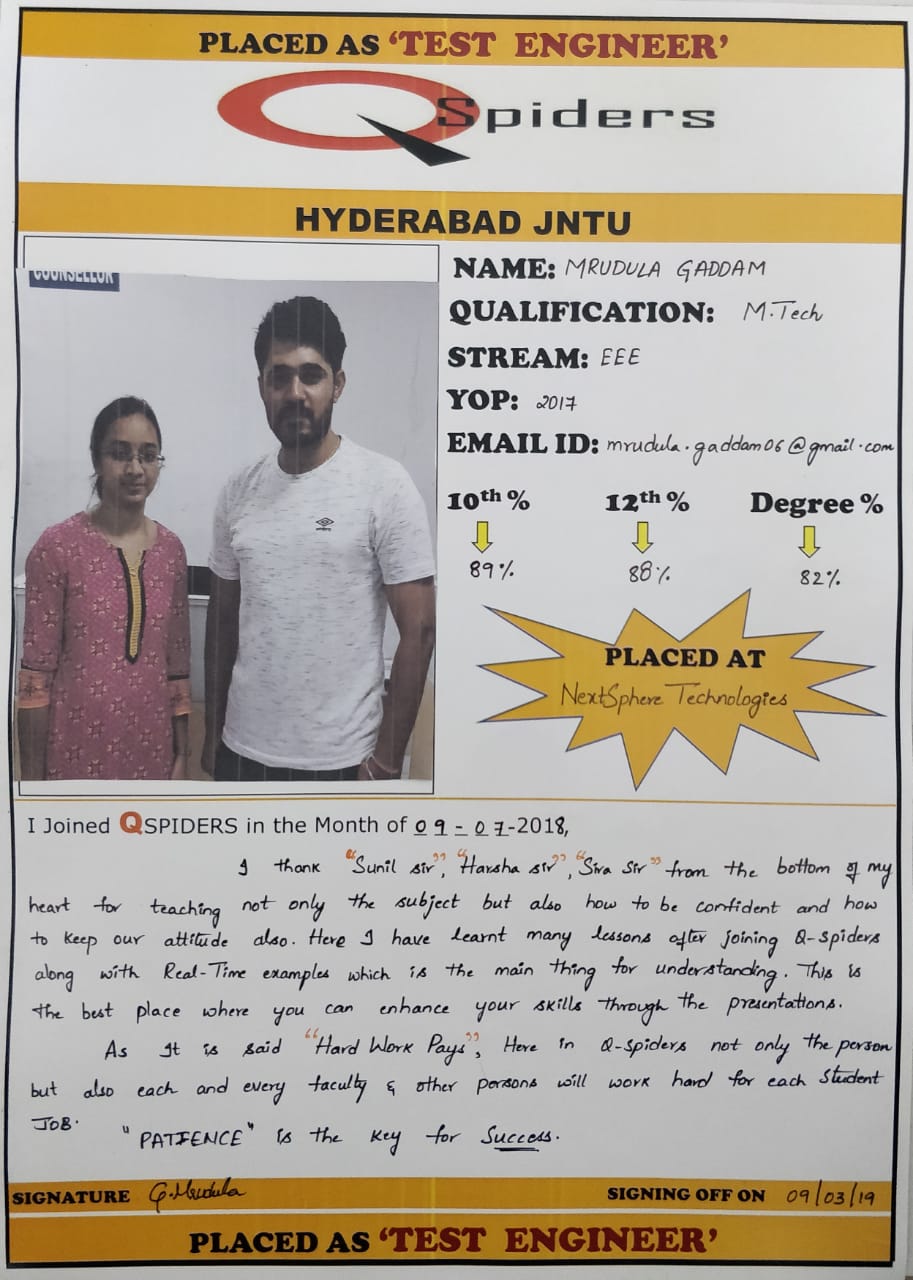 PLACED AS ‘TEST ENGINEER’
QSpiders
HYDERABAD JNTU
COUNSELLOR
NAME: MRUDULA GADDAM
QUALIFICATION: M.Tech
STREAM: EEE
YOP: 2017
EMAIL ID: mrudula.gaddam06@gmail.com
10th % 12th % Degree %
89% 88% 82%
PLACED AT
NextSphere Technologies
I Joined QSPIDERS in the Month of 09-07-2018,
I thank "Sunil sir", "Harsha sir", "Siva Sir" from the bottom of my
heart for teaching not only the subject but also how to be confident and how
to keep our attitude also. Here I have learnt many lessons after joining Q-spiders
along with Real-Time examples which is the main thing for understanding. This is
the best place where you can enhance your skills through the presentations.
As It is said "Hard Work Pays", Here in Q-spiders not only the person
but also each and every faculty & other persons will work hard for each Student
JOB.
"PATIENCE" is the key for Success.
SIGNATURE G.Mrudula SIGNING OFF ON 09/03/19
PLACED AS ‘TEST ENGINEER’